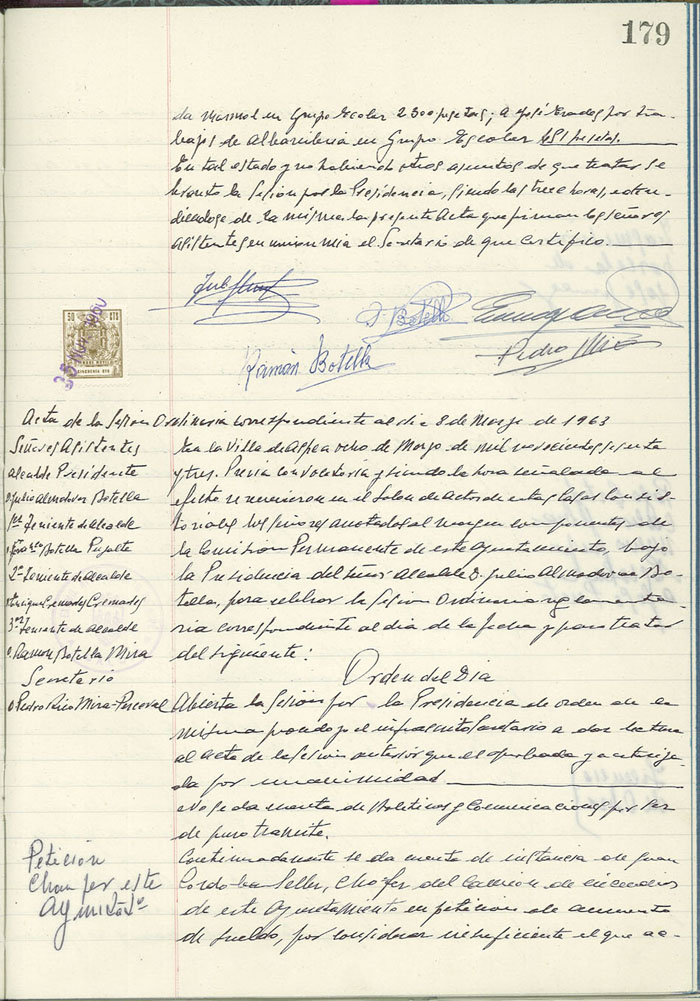 179
da Marmol en Grupo Escolar 2300 pesetas; a José Prades por tra-
bajos de Albañileria en Grupo Escolar 451 pesetas.
En tal estado y no habiendo otros asuntos de que tratar se
levanto la Sesión por la Presidencia, siendo las trece horas, exten-
diendose de la misma la presente Acta que firman los señores
Asistentes en union mia el Secretario de que Certifico.
50 CTS
1960
F Botella
Ramón Botella
Pedro Mira
Acta de la Sesión Ordinaria correspondiente al dia 8 de Marzo de 1963
Señores Asistentes
Alcalde Presidente
D. Julio Almodovar Botella
1er Teniente de Alcalde
D. Franco Botella Pujalte
2º Teniente de Alcalde
D. Enrique Cremades Cremades
3er Teniente de Alcalde
D. Ramon Botella Mira
Secretario
D. Pedro Rico Mira-Perceval
En la Villa de Aspe a ocho de Marzo de mil novecientos sesenta
y tres. Previa convocatoria y siendo la hora señalada al
efecto se reunieron en el Salon de Actos de estas Casas Consis-
toriales los señores anotados al margen componentes de
la Comision Permanente de este Ayuntamiento, bajo
la Presidencia del Señor Alcalde D. Julio Almodovar Bo-
tella, para celebrar la Sesion Ordinaria reglamenta-
ria correspondiente al dia de la fecha y para tratar
del siguiente:
Orden del Dia
Abierta la Sesión por la Presidencia de orden de la
misma procedo yo el infrascrito Secretario a dar lectura
al Acta de la Sesion anterior que es aprobada y autoriza-
da por unanimidad
No se da cuenta de Boletines y Comunicaciones por ser
de puro tramite.
Petición
Chofer este
Aymiento
Continuadamente se da cuenta de instancia de Juan
Cordoba Seller, Chofer del Camion de incendios
de este Ayuntamiento en peticion de aumento
de sueldo, por considerar insuficiente el que ac-